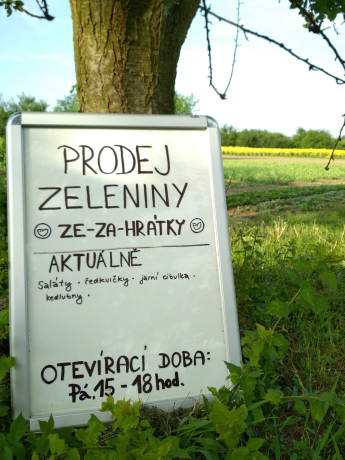 PRODEJ
ZELENINY
ZE-ZA-HRÁTKY
AKTUÁLNĚ
Saláty · ředkvičky · jarní cibulka ·
kedlubny ·
OTEVÍRACÍ DOBA:
Pá, 15 - 18 hod.